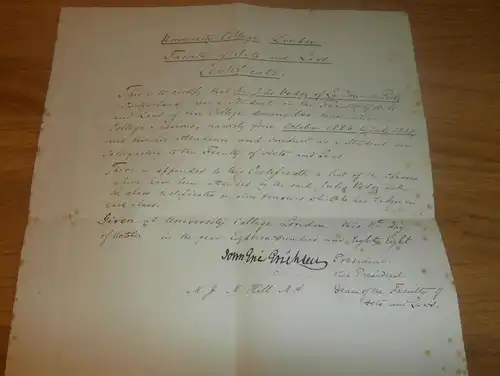 University College, London.
Faculty of Arts and Laws
Certificate.
This is to certify that
Switzerland was a Student in the Faculty of Arts
and Laws of this College during two
College Sessions, namely from October 1886 to July 1888,
and that his attendance and conduct as a Student was
satisfactory to the Faculty of Arts and Laws
There is appended to this Certificate a list of the Classes
which have been attended by the said
the above certificates or other honours which he has
each class.
Given at University College London this 11th day
of October in the year Eighteen Hundred and Eighty Eight
John Eric Erichsen President
Vice President
M. J. M. Hill M.A. Dean of the Faculty of
Arts and Laws.